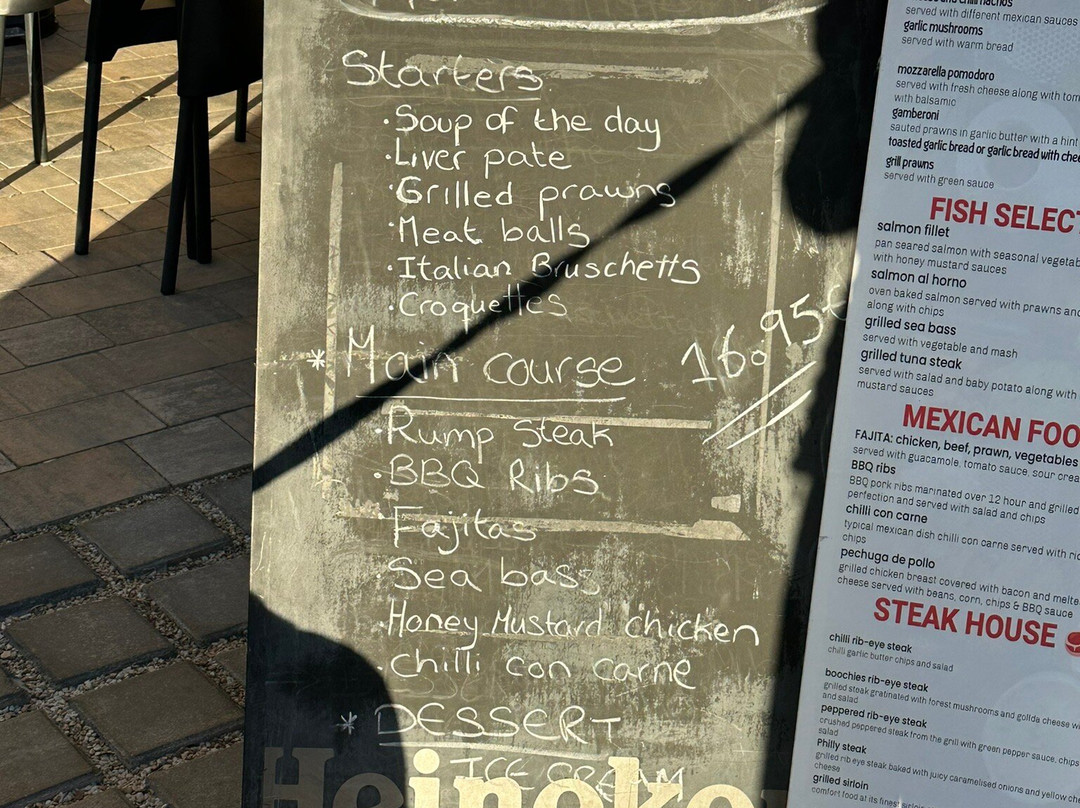 Starters
·Soup of the day
·Liver pate
·Grilled prawns
·Meat balls
·Italian Bruschetts
·Croquettes
* Main course 16.95€
·Rump Steak
·BBQ Ribs
·Fajitas
·Sea bass
·Honey Mustard chicken
·Chilli con carne
* DESSERT
ICE CREAM
Heineken
served with different mexican sauces
garlic mushrooms
served with warm bread
mozzarella pomodoro
served with fresh cheese along with
with balsamic
gamberoni
sauted prawns in garlic butter with a hint
toasted garlic bread or garlic bread with
grill prawns
served with green sauce
FISH
salmon fillet
pan seared salmon with seasonal
with honey mustard sauces
salmon al horno
oven baked salmon served with prawns
along with chips
grilled sea bass
served with vegetable and mash
grilled tuna steak
served with salad and baby potato along with
mustard sauces
MEXICAN
FAJITA: chicken, beef, prawn, vegetables
served with guacamole, tomato sauce, sour
BBQ ribs
BBQ pork ribs marinated over 12 hour and grilled
perfection and served with salad and chips
chilli con carne
typical mexican dish chilli con carne served with
chips
pechuga de pollo
grilled chicken breast covered with bacon and
cheese served with beans, corn, chips & BBQ sauce
STEAK HOUSE
chilli rib-eye steak
chilli garlic butter chips and salad
boochies rib-eye steak
grilled steak gratinated with forest mushrooms and gollda cheese
and salad
peppered rib-eye steak
crushed peppered steak from the grill with green pepper sauce,
salad
Philly steak
grilled rib eye steak baked with juicy caramelised onions and yellow
cheese
grilled sirloin
comfort food at its finest